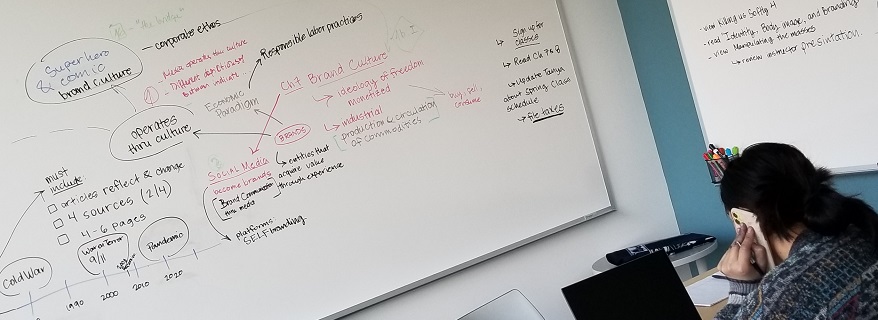 "the bridge"
Superhero
& comic
brand culture
corporate ethos
Responsible labor practices
Economic
Paradigm
operates
thru culture
Ch7 Brand Culture
ideology of freedom
monetized
industrial
production & circulation
of commodities
buy, sell,
consume
BRANDS
entities that
acquire value
through experience
Social Media
become brands
Brand Communication
thru media
platforms
SELF branding
must
include:
articles reflect & change
4 sources (2/4)
4-6 pages
Cold War
War on Terror
9/11
Pandemic
1990
2000
2010
2020
Sign up for
classes
Read Ch 7 & 8
Update Tanya
about Spring Class
schedule
file taxes
view Killing us Softly 4
read Identity, Body Image, and Branding
view Manipulating the masses
review instructor presentation